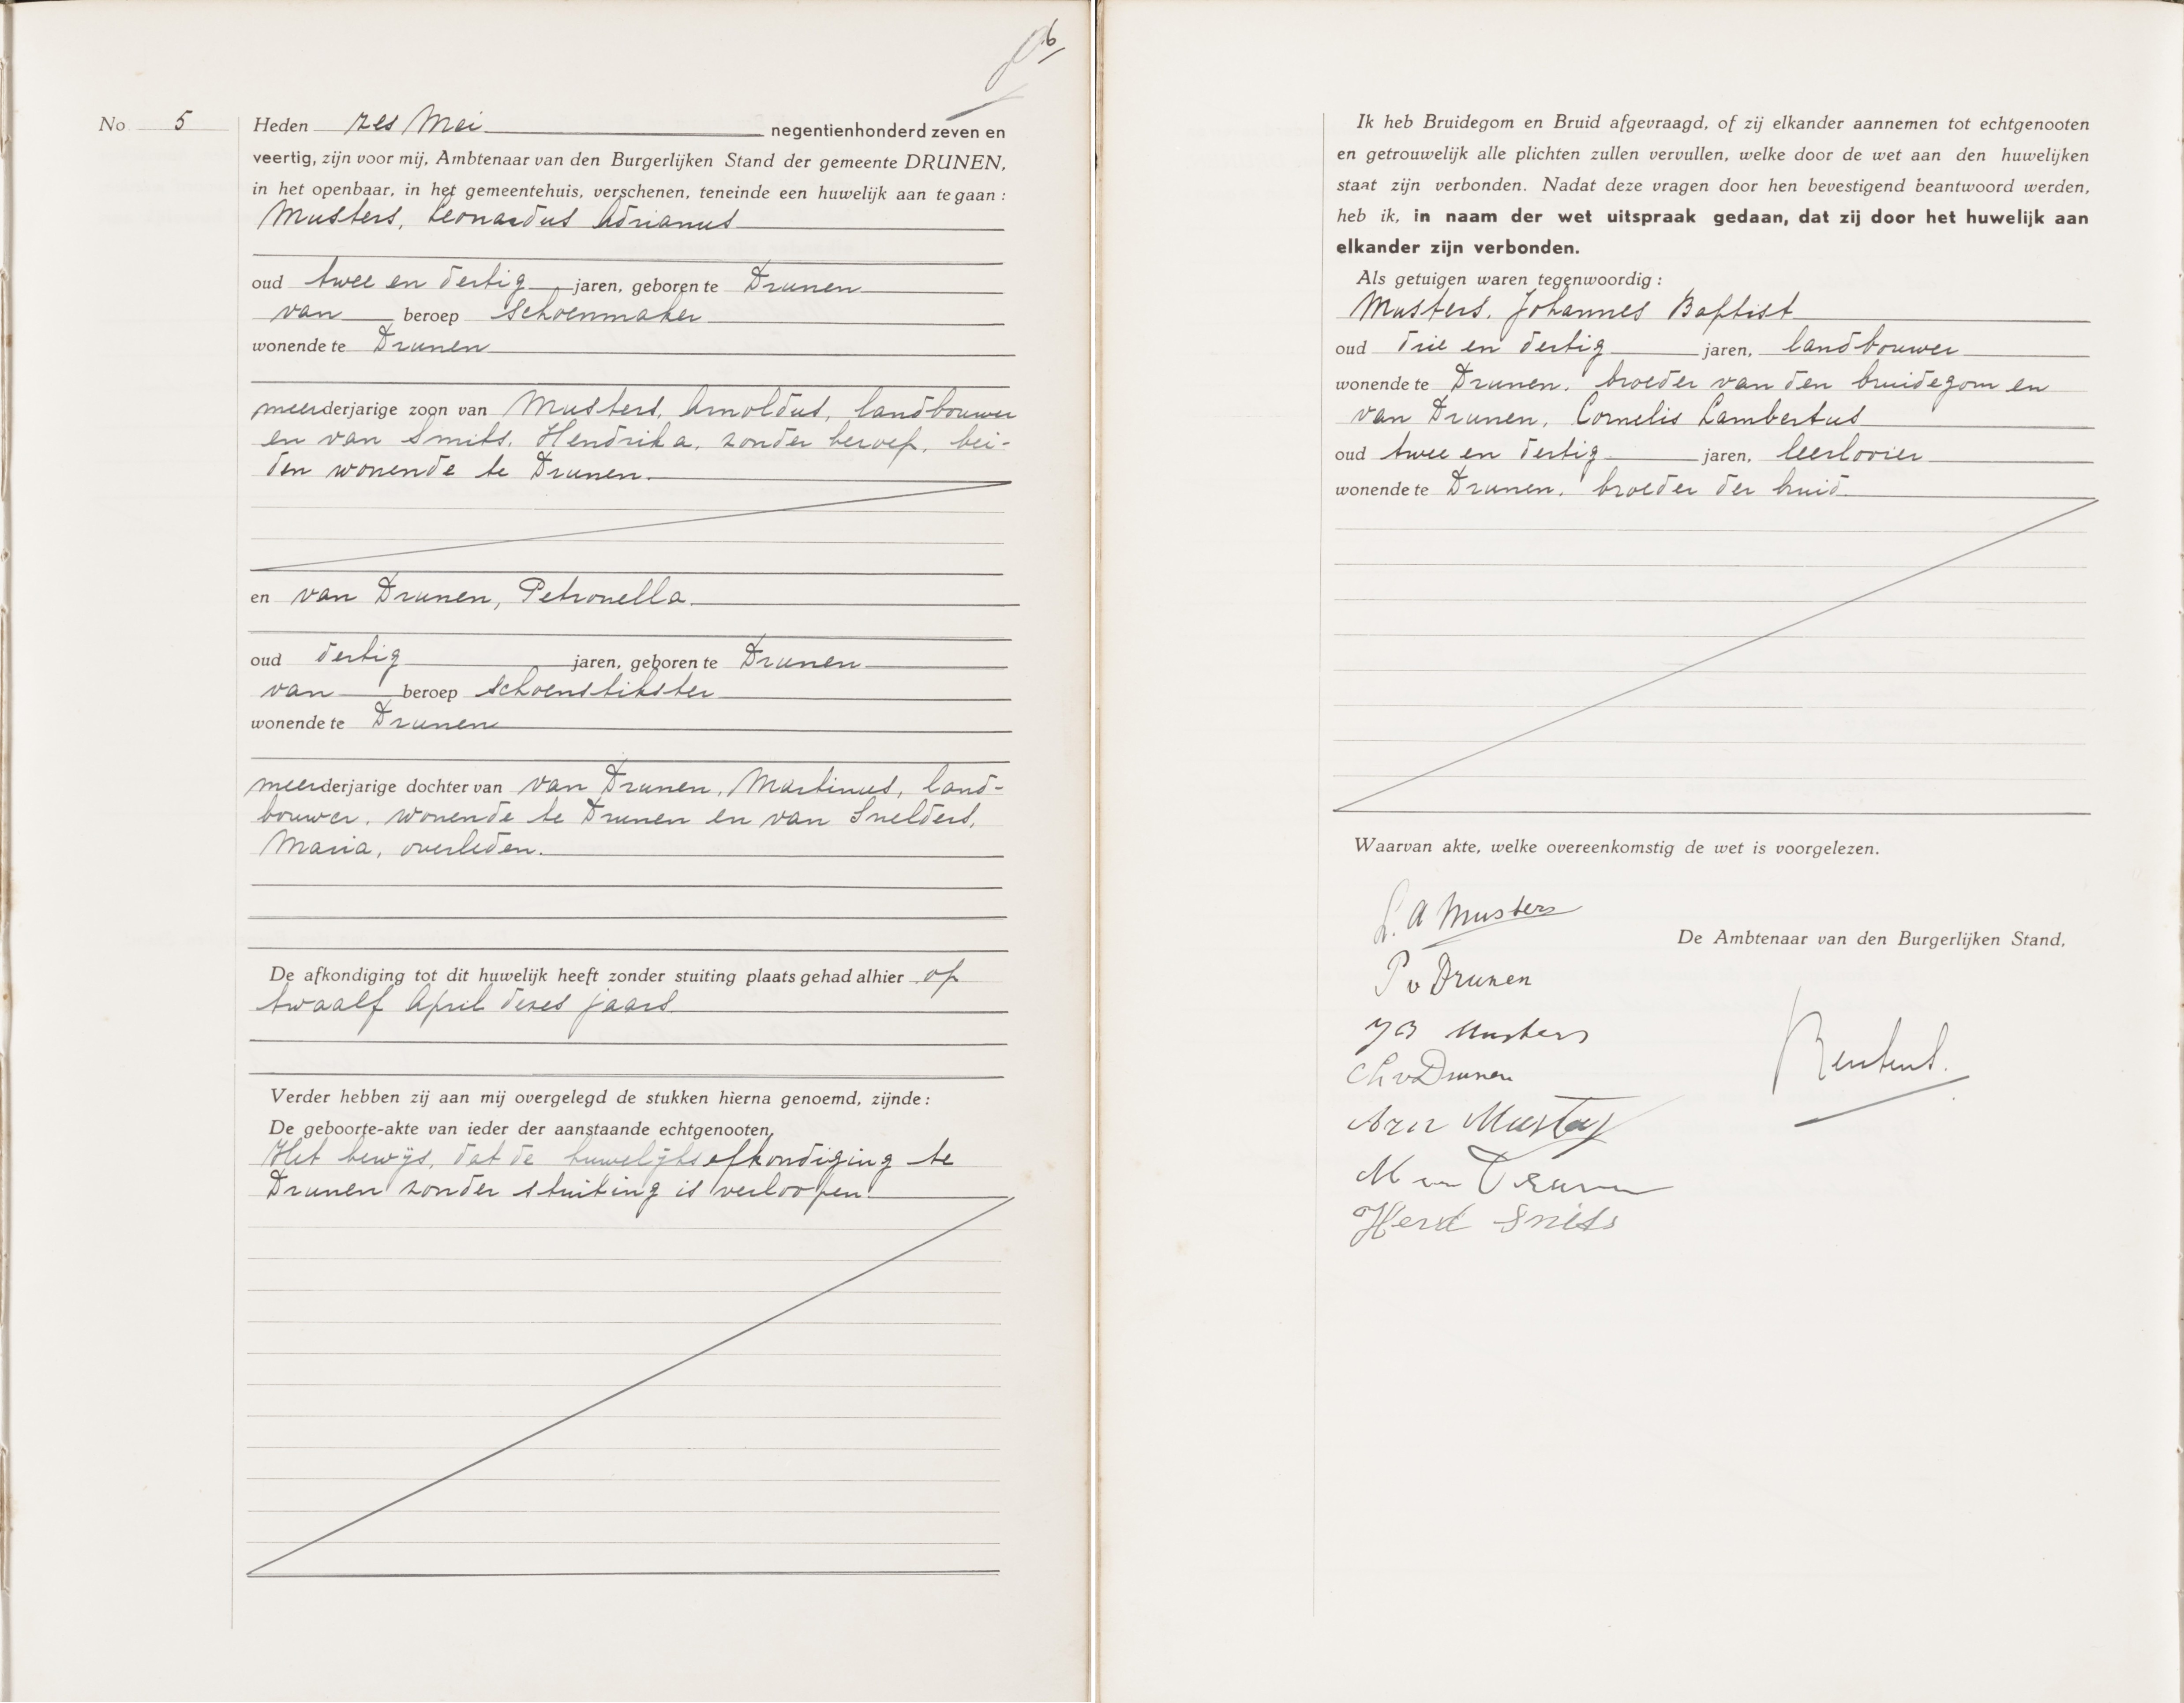 6
No 5 Heden zes Mei negentienhonderd zeven en
veertig, zijn voor mij, Ambtenaar van den Burgerlijken Stand der gemeente DRUNEN,
in het openbaar, in het gemeentehuis, verschenen, teneinde een huwelijk aan te gaan :
Musters, Leonardus Adrianus
oud twee en dertig jaren, geboren te Drunen
van beroep schoenmaker
wonende te Drunen
meerderjarige zoon van Musters, Arnoldus, landbouwer
en van Smits, Hendrika, zonder beroep, bei-
den wonende te Drunen.
en van Drunen, Petronella
oud dertig jaren, geboren te Drunen
van beroep schoenstikster
wonende te Drunen
meerderjarige dochter van van Drunen, Martinus, land-
bouwer, wonende te Drunen en van Snelders,
Maria, overleden.
De afkondiging tot dit huwelijk heeft zonder stuiting plaats gehad alhier op
twaalf April dezes jaars
Verder hebben zij aan mij overgelegd de stukken hierna genoemd, zijnde :
De geboorte-akte van ieder der aanstaande echtgenooten,
Het bewijs, dat de huwelijksafkondiging te
Drunen zonder stuiting is verloopen.
Ik heb Bruidegom en Bruid afgevraagd, of zij elkander aannemen tot echtgenooten
en getrouwelijk alle plichten zullen vervullen, welke door de wet aan den huwelijken
staat zijn verbonden. Nadat deze vragen door hen bevestigend beantwoord werden,
heb ik, in naam der wet uitspraak gedaan, dat zij door het huwelijk aan
elkander zijn verbonden.
Als getuigen waren tegenwoordig :
Musters, Johannes Baptist
oud drie en dertig jaren, landbouwer
wonende te Drunen, broeder van den bruidegom en
van Drunen, Cornelis Lambertus
oud twee en dertig jaren, leerlooier
wonende te Drunen, broeder der bruid
Waarvan akte, welke overeenkomstig de wet is voorgelezen.
L. A Musters
De Ambtenaar van den Burgerlijken Stand,
P v Drunen
J B Musters
Ch v Drunen
Arn Musters
M van Drunen
Hend Smits